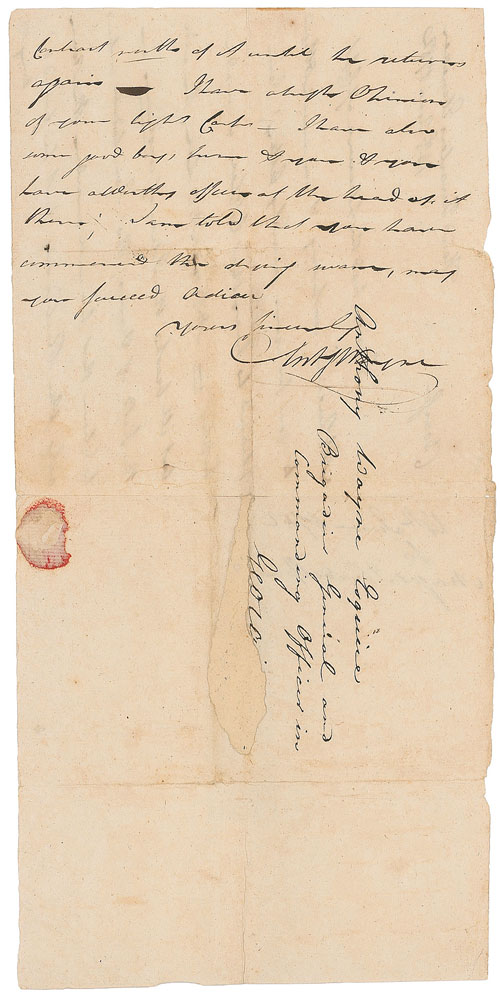 Contract north of it until he returns
again — I have a high Opinion
of your light Corps – I have also
some good boys here & you
have a worthy officer at the head of it
there; I am told that you have
commenced the driving, may
you succeed Adieu
Yours Sincerely
Anty Wayne
Anthony Wayne Esquire
Brigadier General and
Commanding Officer in